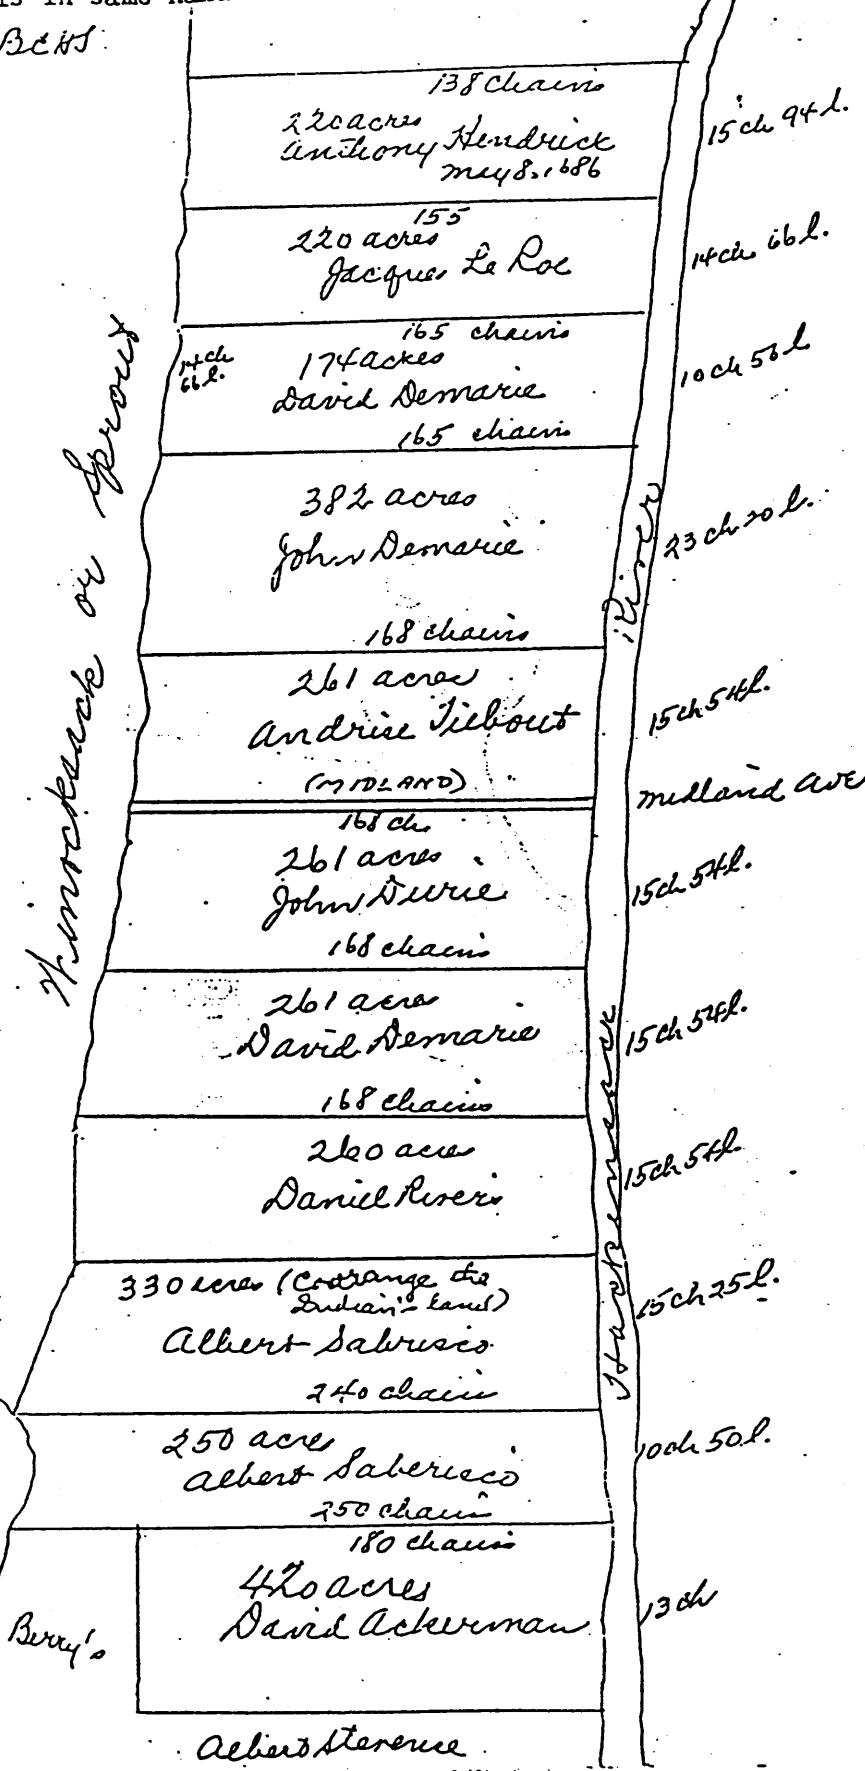 BCHS
138 chains
220 acres
Anthony Hendrick
May 8, 1686
15 ch 94 l.
155
220 acres
Jacques Le Roe
14 ch 66 l.
165 chains
14 ch
66 l.
174 acres
David Demarie
165 chains
10 ch 56 l
382 acres
John Demarie
168 chains
23 ch 20 l.
261 acres
Andrise Tiebout
(MIDLAND)
15 ch 54 l.
Midland Ave
168 ch.
261 acres
John Durie
168 chains
15 ch 54 l.
261 acres
David Demarie
168 chains
15 ch 54 l.
260 acres
Daniel Rivers
15 ch 54 l.
330 acres (the
Indian's land)
Albert Sabrisco
240 chain
15 ch 25 l.
250 acres
Albert Saberisco
250 chains
10 ch 50 l.
180 chains
420 acres
David Ackerman
13 ch
Berry's
Albert
or Sprout
Hackensack River